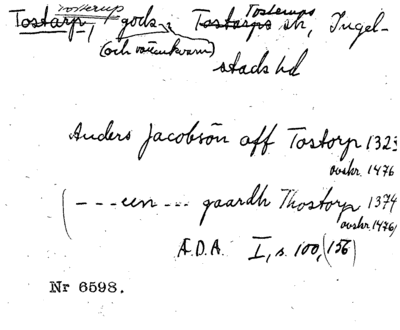 Tosterup Tosterups
Tostarp, gods, Tostarps sn, Ingel-
(och väderkvarn)
stads hd
Anders Jacobsön aff Tostorp 1323
avskr. 1476
(---een --- gaardh Thostorp 1374
avskr. 1476)
Æ.D.A. I, s. 100, (156)
Nr 6598.